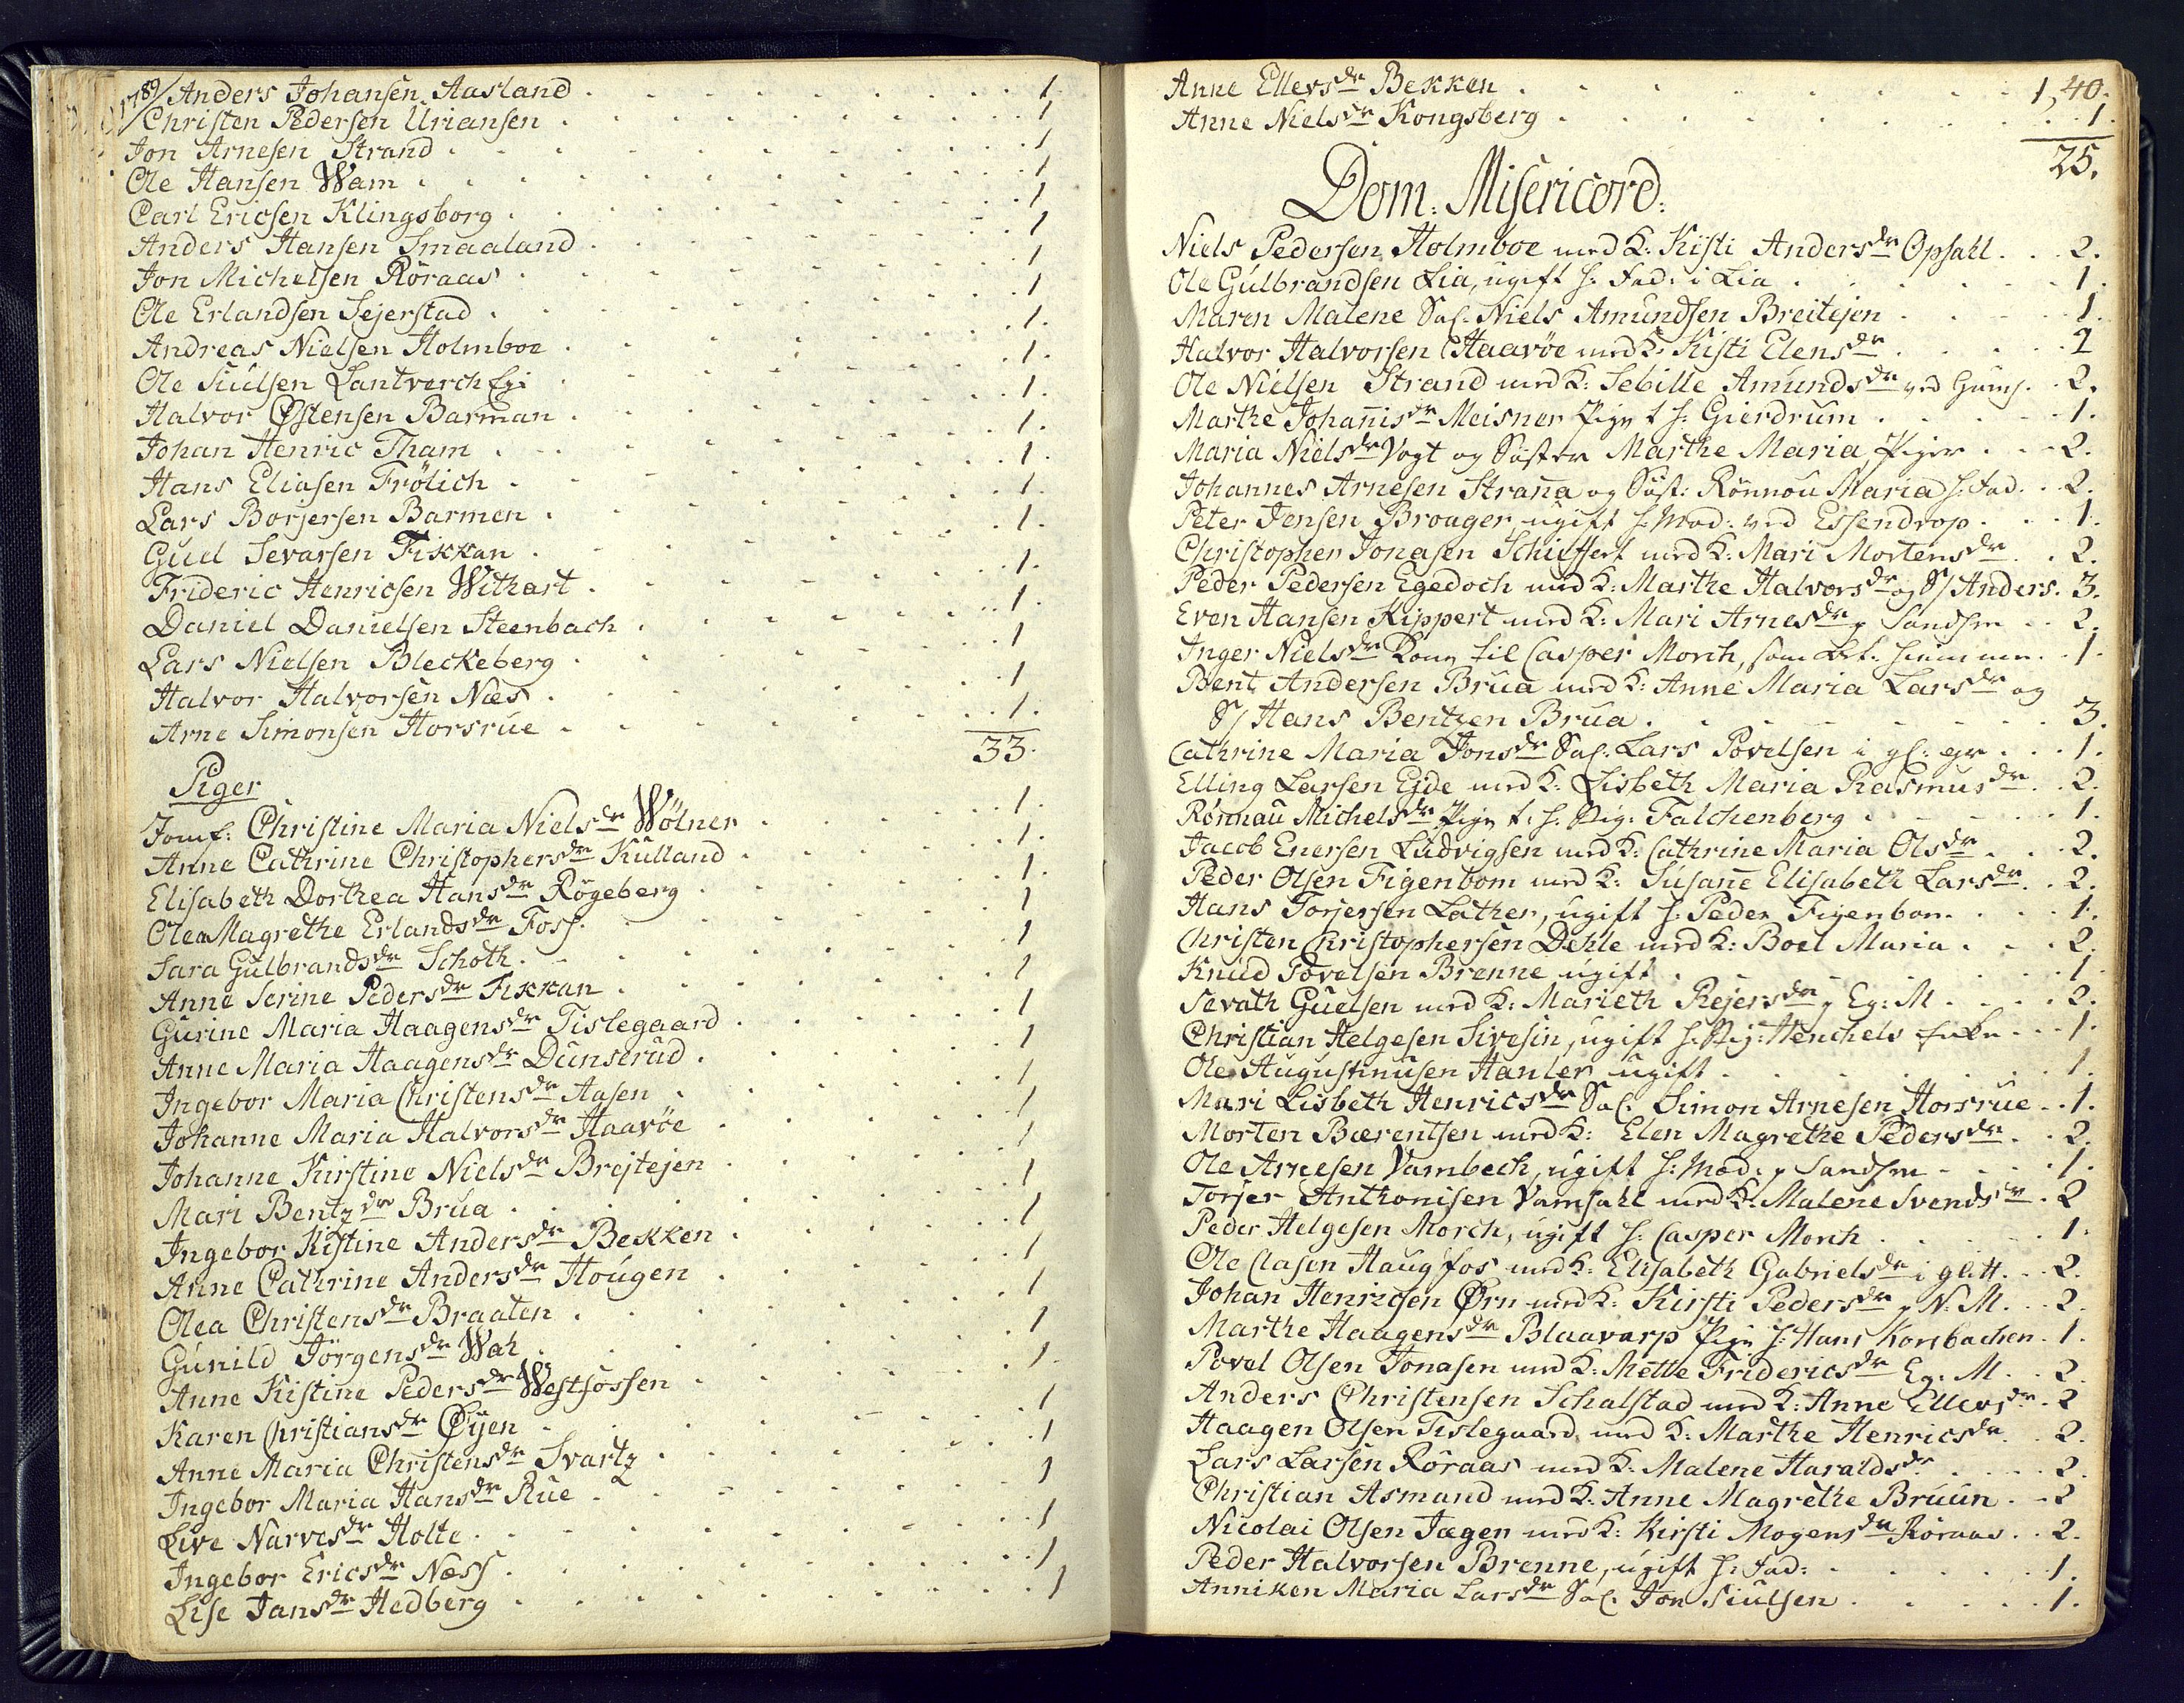 1789/ Anders Johansen Aasland 1.
Christen Pedersen Uriansen 1
Jon Arnesen Strand 1
Ole Hansen Wam 1
Carl Ericsen Klingsborg 1
Anders Hansen Smaaland 1
Jon Michelsen Röraas 1
Ole Erlandsen Sejerstad 1
Andreas Nielsen Holmboe 1.
Ole Siulsen Lantverch Eje 1.
Halvor Østensen Barman 1.
Johan Henric Tham 1.
Hans Eliasen Frölich 1.
Lars Borjersen Barmen 1.
Guel Sevarsen Fikkan 1.
Frideric Henricsen Withart 1.
Daniel Danielsen Steenbach 1.
Lars Nielsen Bleckeberg 1
Halvor Halvorsen Næs 1
Arne Simonsen Horsrue 1.
33.
Piger
Jomf: Christine Maria Nielsdr Wölner 1.
Anne Cathrine Christophersdr Kulland 1.
Elisabeth Dorthea Hansdr Rögeberg 1.
Olea Magrethe Erlandsdr Foss. 1
Sara Gulbrandsdr Schoth 1
Anne Serine Pedersdr Fikkan 1
Gurine Maria Haagensdr Tislegaard 1
Anne Maria Haagensdr Dunserud 1
Ingebor Maria Christensdr Aasen 1
Johanne Maria Halvorsdr Haavöe 1
Johanne Kirstine Nielsdr Brejtejen 1
Mari Bentzdr Brua 1
Ingebor Kistine Andersdr Bekken 1
Anne Cathrine Andersdr Hougen 1
Olea Christensdr Braaten 1
Gunild Jörgensdr Wah 1
Anne Kistine Pedersdr Westfossen 1.
Karen Christiansdr Øyen 1
Anne Maria Christensdr Svartz 1
Ingebor Maria Hansdr Rue 1
Live Narvesdr Holte 1
Ingebor Ericsdr Næss 1
Lise Jansdr Hedberg 1
Anne Ellevsdr Bekken 1,40.
Anne Nielsdr Kongsberg 1.
25.
Dom: Misericord:
Niels Pedersen Holmboe med K: Kisti Andersdr Opsahl 2.
Ole Gulbrandsen Lia, ugift h: Fad: i Lia 1.
Maren Malene Sal. Niels Amundsen Breitejen 1.
Halvor Halvorsen Haavöe med K: Kisti Elensdr 2
Ole Nielsen Strand med K: Sebille Amundsdr ved 2.
Marthe Johanisdr Meisner Pige t h: Gierdrum 1.
Maria Nielsdr Vogt og Söster Marthe Maria Piger 2.
Johannes Arnesen Strana og Söst: Rönnou Maria h: Fad. 2.
Peter Jensen Brouger, ugift h: Mod: ved Essendrop 1.
Christopher Jonasen Schiffert med K: Mari Mortensdr 2.
Peder Pedersen Egedoch med K: Marthe Halvorsdr og S/ Anders. 3.
Even Hansen Kippert med K: Mari Arnesdr p Sandsen 2.
Inger Nielsdr Kone til Casper Morch, som 1.
Bent Andersen Brua med K: Anne Maria Larsdr og
S/ Hans Bentzen Brua 3.
Cathrine Maria Jonsdr Sal. Lars Povelsen i gl: gr 1.
Elling Larsen Ejde med K: Lisbeth Maria Rasmusdr 2.
Rönnau Michelsdr Pige t. h. Falchenberg 1.
Jacob Enersen Ludvigsen med K: Cathrine Maria Olsdr 2.
Peder Olsen Figenbom med K: Susane Elisabeth Larsdr 2.
Hans Torjersen Lather, ugift h: Peder Figenbom 1.
Christen Christophersen Dehle med K: Boel Maria 2.
Knud Povelsen Brenne ugift 1.
Sevath Guelsen med K: Marieth Rejersdr p Eg: M 2.
Christian Helgesen Sivesin, ugift h: Henchels Enke 1.
Ole Augustinusen Hanler ugift 1.
Mari Lisbeth Henricsdr Sal. Simon Arnesen Horsrue 1.
Morten Bærentsen med K: Elen Magrethe Pedersdr 2.
Ole Arnesen Vambech, ugift h: Mod: p Sandsen 1.
Torjer Anthonisen Vamsahl med K: Malene Svendsdr 2
Peder Helgesen Morch, ugift h: Casper Morch 1.
Ole Clasen Haugfos med K: Elisabeth Gabrielsdr i gl: H. 2.
Johan Henricsen Örn med K: Kirsti Pedersdr p N: M. 2.
Marthe Haagensdr Blaavarp Pige h: Hans Korsbachen. 1.
Povel Olsen Jonasen med K: Mette Fridericsdr Eg. M. 2.
Anders Christensen Schalstad med K: Anne Ellevsdr 2
Haagen Olsen Tislegaard med K: Marthe Henricsdr 2.
Lars Larsen Röraas med K: Malene Haraldsdr 2.
Christian Asmand med K: Anne Magrethe Bruun 2
Nicolai Olsen Jæger med K: Kirsti Mogensdr Röraas 2.
Peder Halvorsen Brenne, ugift h: Fad: 1.
Anniken Maria Larsdr Sal. Jon Siulsen 1.